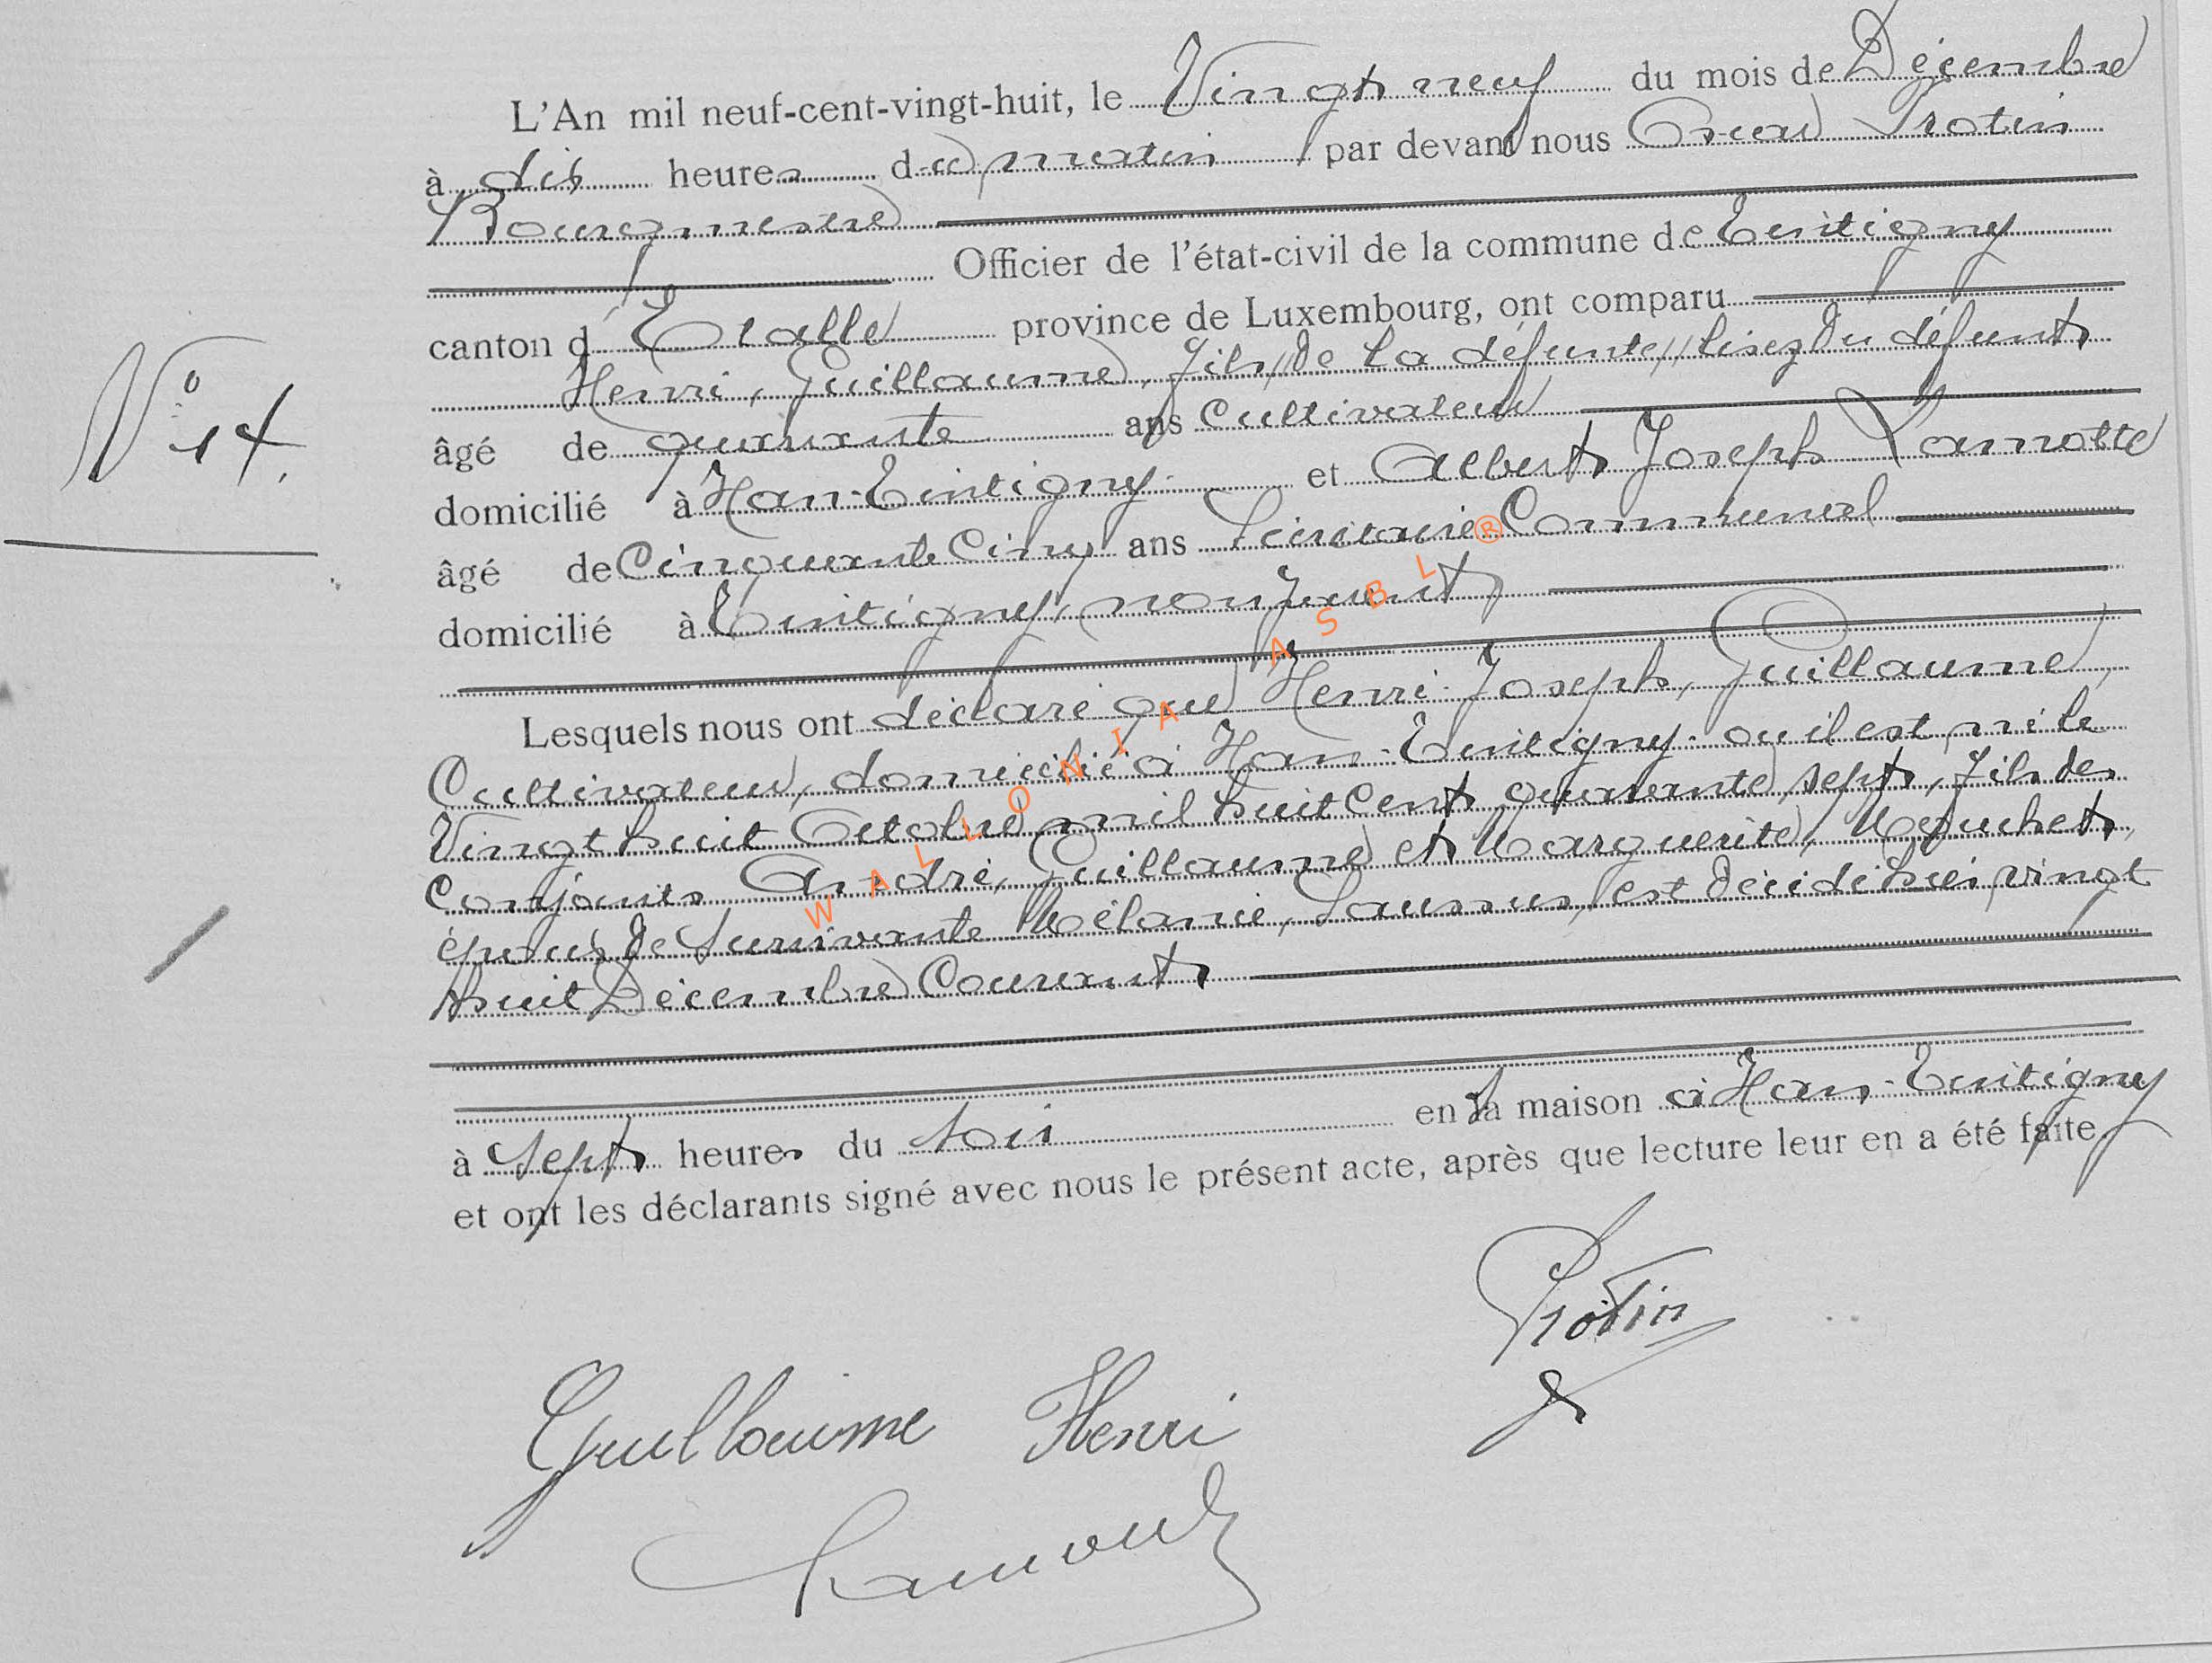 L'An mil neuf-cent-vingt-huit, le Vingt neuf du mois de Décembre
à dix heures du matin par devant nous Oscar Protin
Bourgmestre
Officier de l'état-civil de la commune de Tintigny
canton d'Etalle province de Luxembourg, ont comparu
Henri, Guillaume, fils "de la défunte" lisez du défunt
N° 14.
âgé de quarante ans Cultivateur
domicilié à Han-Tintigny et Albert Joseph Lamotte
âgé de Cinquante Cinq ans Secrétaire Communal
domicilié à Tintigny, non parent
Lesquels nous ont déclaré que Henri Joseph, Guillaume,
Cultivateur, domicilié à Han-Tintigny où il est né le
Vingt huit Octobre mil huit Cent quarante sept, fils des
Conjoints André, Guillaume et Marguerite,
époux de Survivante Mélanie, est décédé hier vingt
huit Décembre Courant
à Sept heures du soir en sa maison à Han-Tintigny
et ont les déclarants signé avec nous le présent acte, après que lecture leur en a été faite
Protin
Guillaume Henri
Lamotte
WALLONIA ASBL®